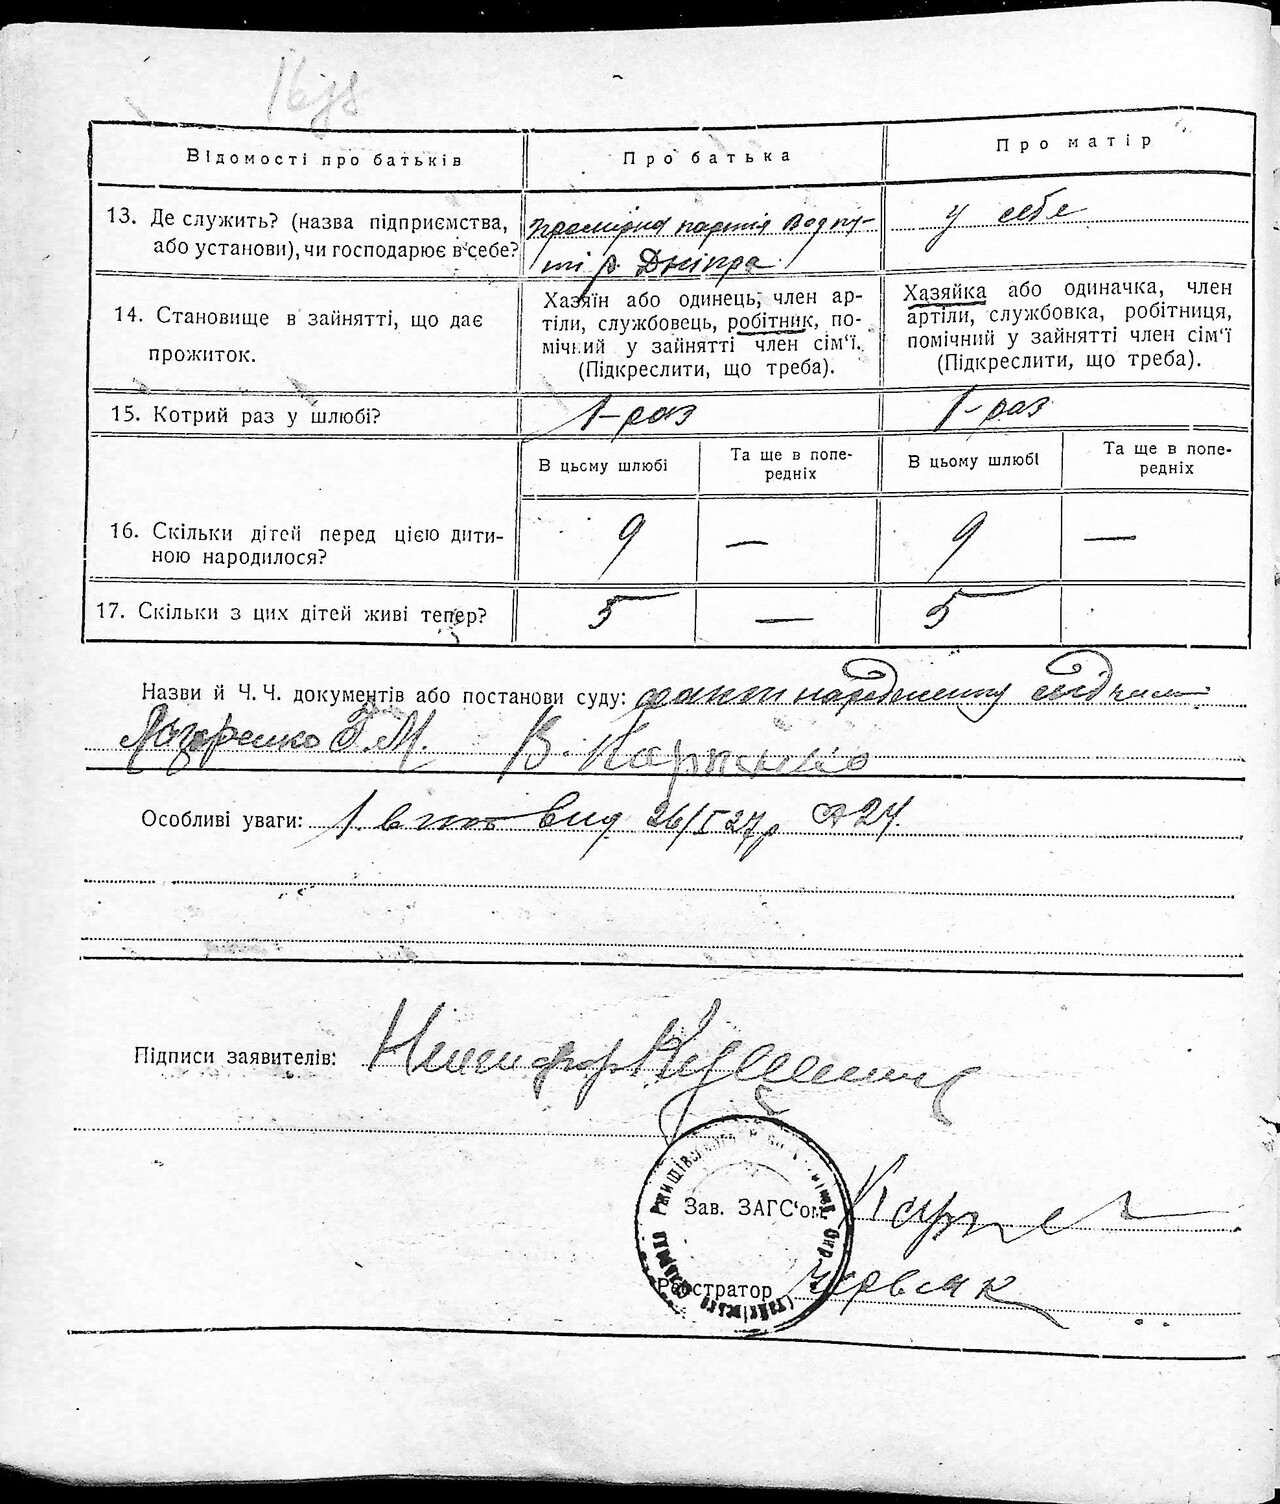 Відомості про батьків
Про батька
Про матір
13. Де служить? (назва підприємства, або установи), чи господарює в себе?
Промірна партія Водпу-
ті р. Дніпра.
у себе
14. Становище в зайнятті, що дає прожиток.
Хазяїн або одинець, член ар-
тіли, службовець, робітник, по-
мічний у зайнятті член сім'ї.
(Підкреслити, що треба).
Хазяйка або одиначка, член
артіли, службовка, робітниця,
помічний у зайнятті член сім'ї
(Підкреслити, що треба).
15. Котрий раз у шлюбі?
1-раз
1-раз
В цьому шлюбі
Та ще в попе-
редніх
В цьому шлюбі
Та ще в попе-
редніх
16. Скільки дітей перед цією дити-
ною народилося?
9 — 9 —
17. Скільки з цих дітей живі тепер?
5 — 5
Назви й Ч. Ч. документів або постанови суду: факт народження
В. Карпенко
Особливі уваги: 1. вид 26/I 27р 24.
Підписи заявителів: Никифор
Зав. ЗАГС'ом
Реєстратор Червяк